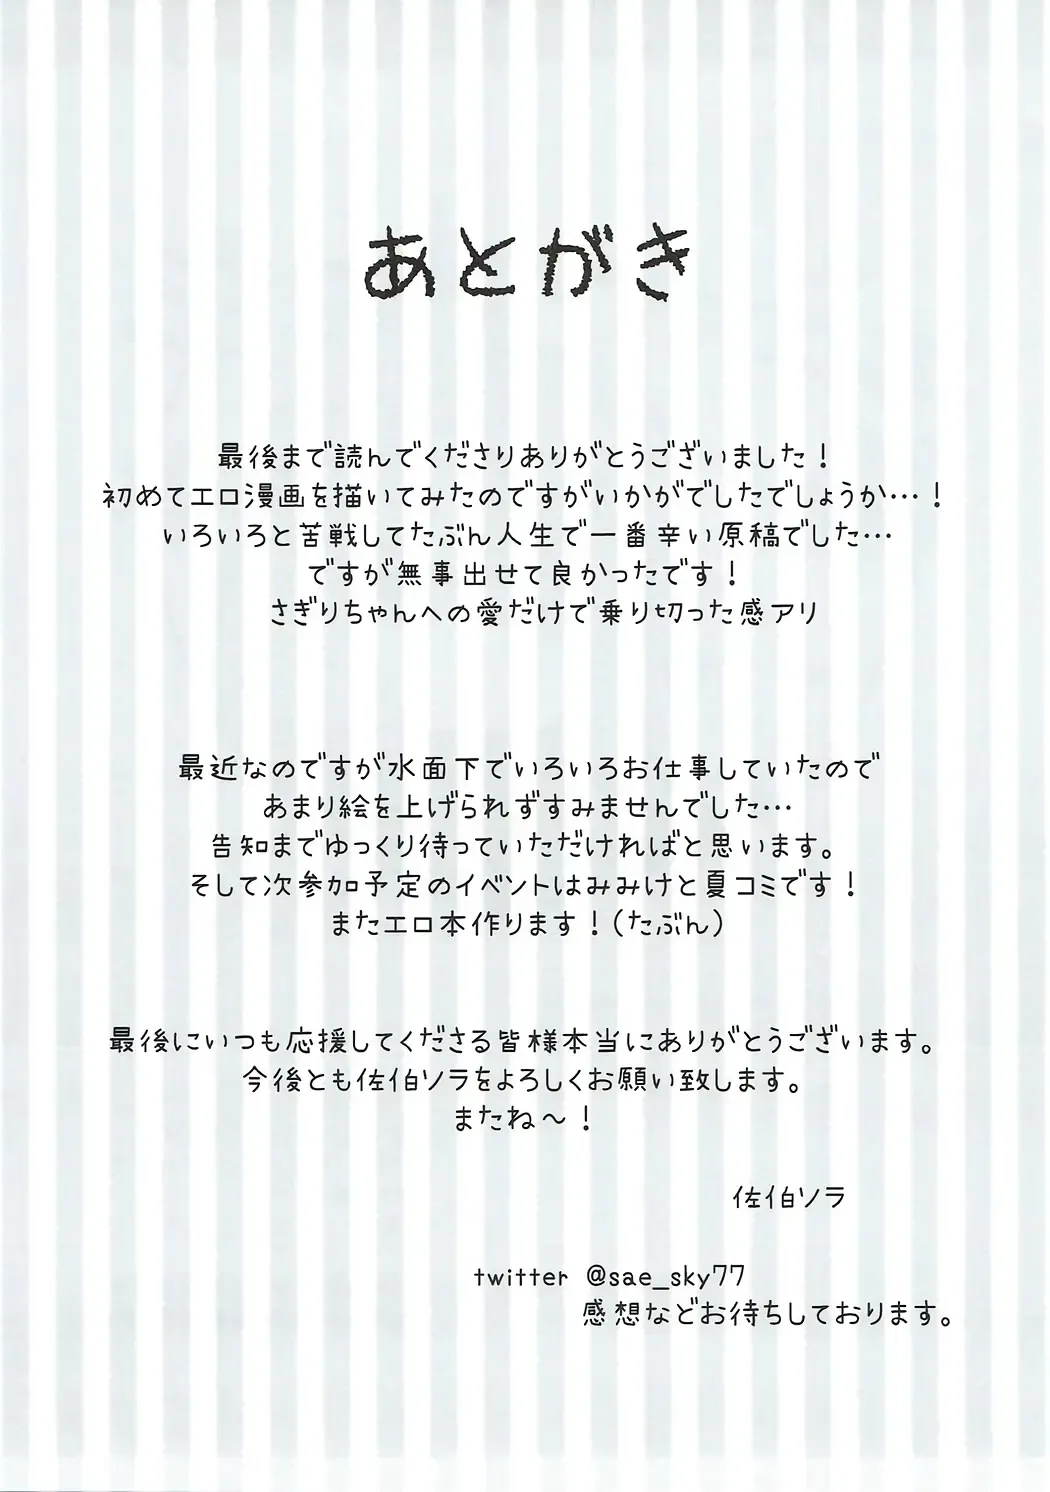 あとがき
最後まで読んでくださりありがとうございました！
初めてエロ漫画を描いてみたのですがいかがでしたでしょうか…！
いろいろと苦戦してたぶん人生で一番辛い原稿でした…
ですが無事出せて良かったです！
さぎりちゃんへの愛だけで乗り切った感アリ
最近なのですが水面下でいろいろお仕事していたので
あまり絵を上げられずすみませんでした…
告知までゆっくり待っていただければと思います。
そして次参加予定のイベントはみみけと夏コミです！
またエロ本作ります！(たぶん)
最後にいつも応援してくださる皆様本当にありがとうございます。
今後とも佐伯ソラをよろしくお願い致します。
またね～！
佐伯ソラ
twitter @sae_sky77
感想などお待ちしております。